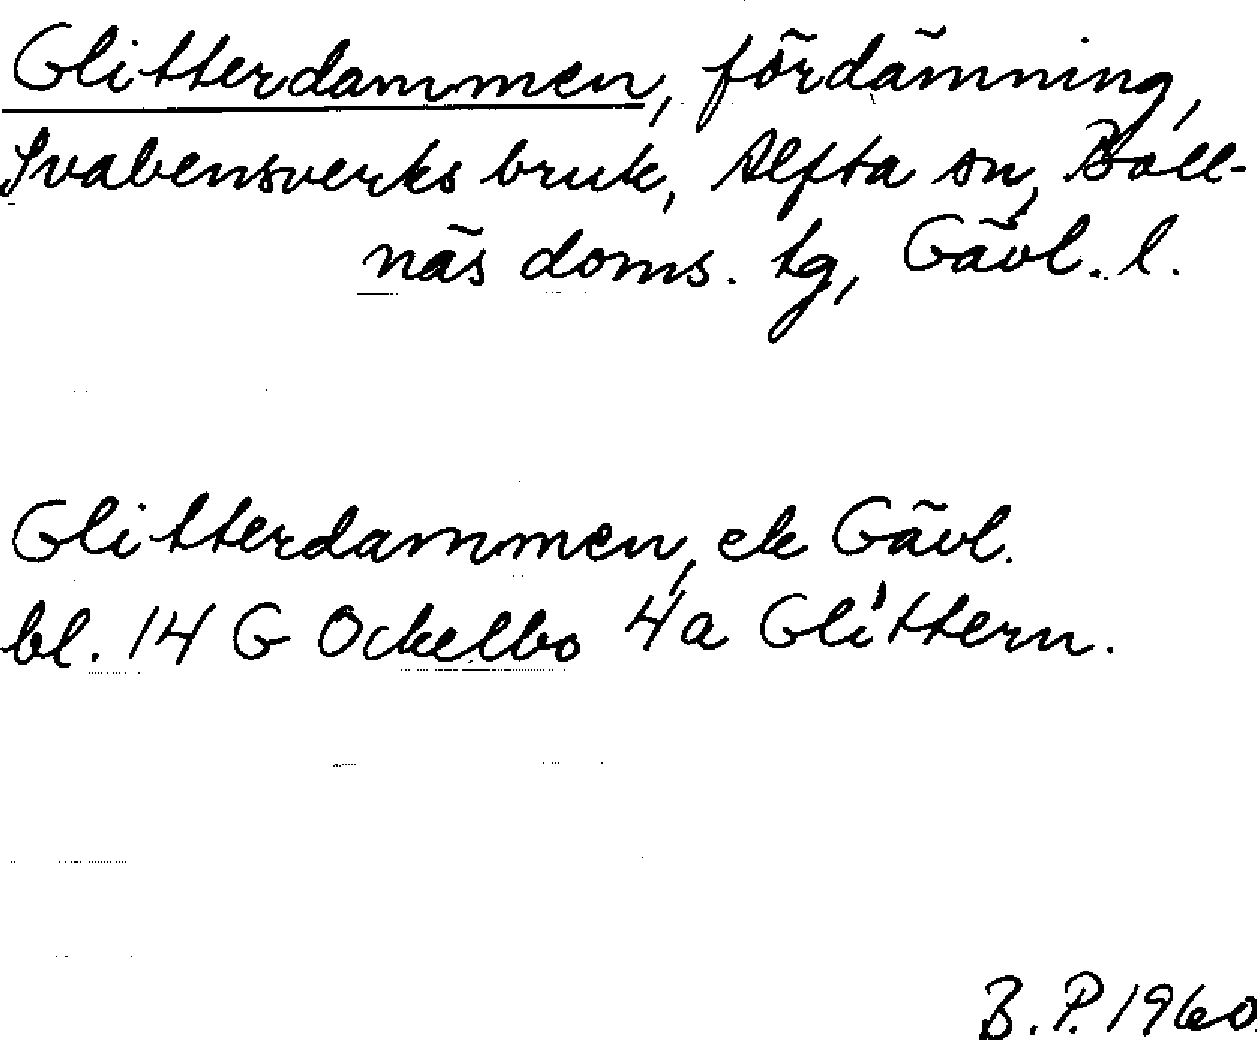 Glitterdammen, fördämning,
Svabensverks bruk, Alfta sn, Boll-
näs doms. tg, Gävl. l.
Glitterdammen, ek Gävl.
bl. 14 G Ockelbo 4a Glittern.
B. P. 1960.